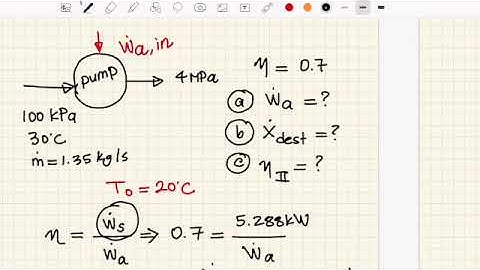 Ẇa,in
pump
4 MPa
100 kPa
30°C
ṁ = 1.35 kg/s
η = 0.7
ⓐ Ẇa = ?
ⓑ Ẋdest = ?
ⓒ ηII = ?
T0 = 20°C
η = Ẇs / Ẇa ⇒ 0.7 = 5.288 kW / Ẇa